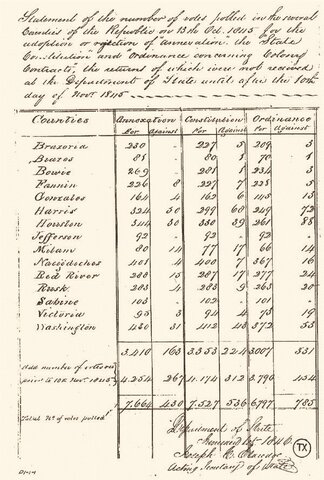 Statement of the number of votes polled in the several
Counties of the Republic on 13th Oct. 1845 for the
adoption or rejection of annexation the State
Constitution and Ordinance concerning Colony
Contracts, the returns of which were not received
at the Department of State until after the 10th
day of Novr 1845
Counties Annexation Constitution Ordinance
For Against For Against For Against
Brazoria 230 . 227 5 209 3
Brazos 81 . 80 1 70 1
Bowie 269 281 1 234 3
Fannin 226 8 227 7 225 5
Gonzales 164 4 162 6 145 13
Harris 324 30 299 60 249 72
Houston 344 50 330 39 267 88
Jefferson 92 . 92 . 92
Milam 80 14 77 17 66 14
Nacogdoches 401 4 400 7 367 16
Red River 288 15 287 17 277 24
Rusk 283 4 283 9 263 20
Sabine 103 . 102 . 101 .
Victoria 95 3 94 4 75 19
Washington 430 31 412 43 372 53
3.410 163 3.353 224 3007 331
Add number of returns
prior to 10th Novr 1845 4.254 267 4.174 312 3.790 454
Total No of votes polled 7.664 430 7.527 536 6797 785
Department of State
1846
Joseph C.
Acting Secretary of State
TX